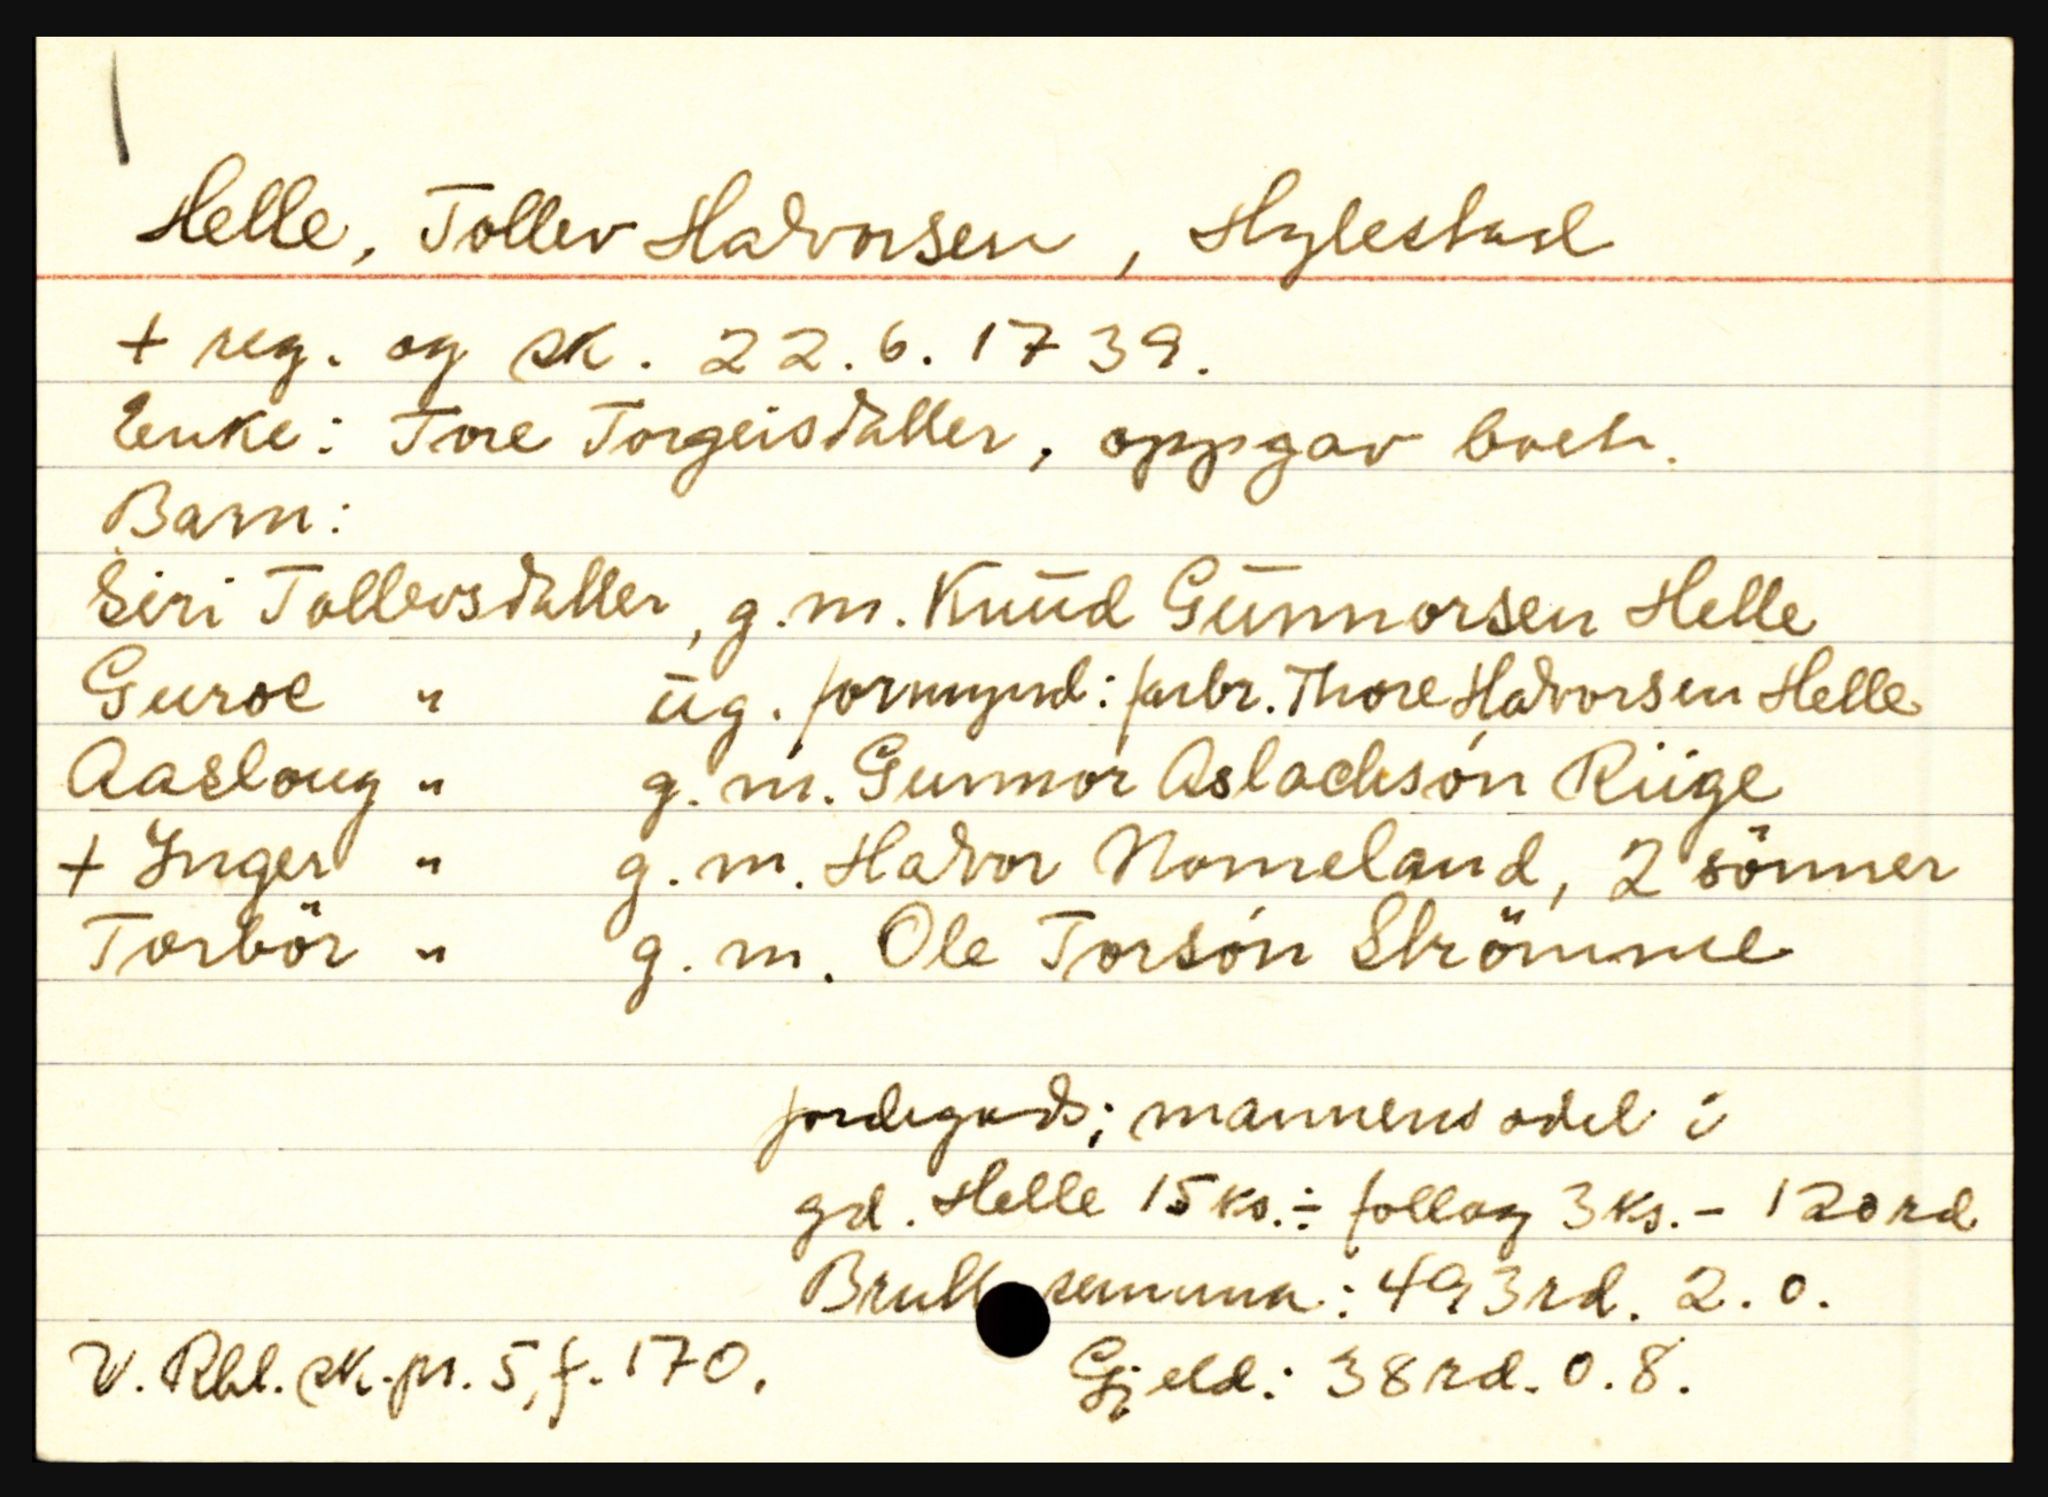 Helle, Tollev Halvorsen, Hylestad
+ reg. og sk. 22.6.1739.
Enke: Tore Torgeisdatter, oppgav boet.
Barn:
Siri Tollevsdatter, g.m. Knud Gunnorsen Helle
Guroe " ug. formynd: farbr. Thore Halvorsen Helle
Aasloug " g.m. Gunnor Aslachsón Riige
+ Inger " g.m. Halvor Nomeland, 2 sönner
Torbör " g.m. Ole Torsón Strömme
jordegods; mannens odel i
gd. Helle 15 ks. ÷ follog 3 ks. - 120 rd
Brutto summa: 493 rd. 2.0.
V. Rbl. sk. pr. 5, f. 170. Gjeld: 38 rd. 0.8.